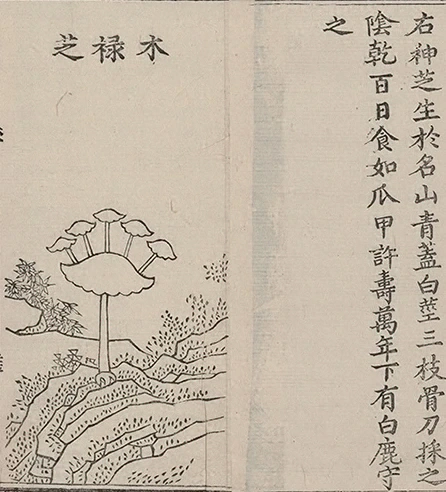 右神芝生於名山青蓋白莖三枝骨刀採之
陰乾百日食如瓜甲許壽萬年下有白鹿守
之
木禄芝